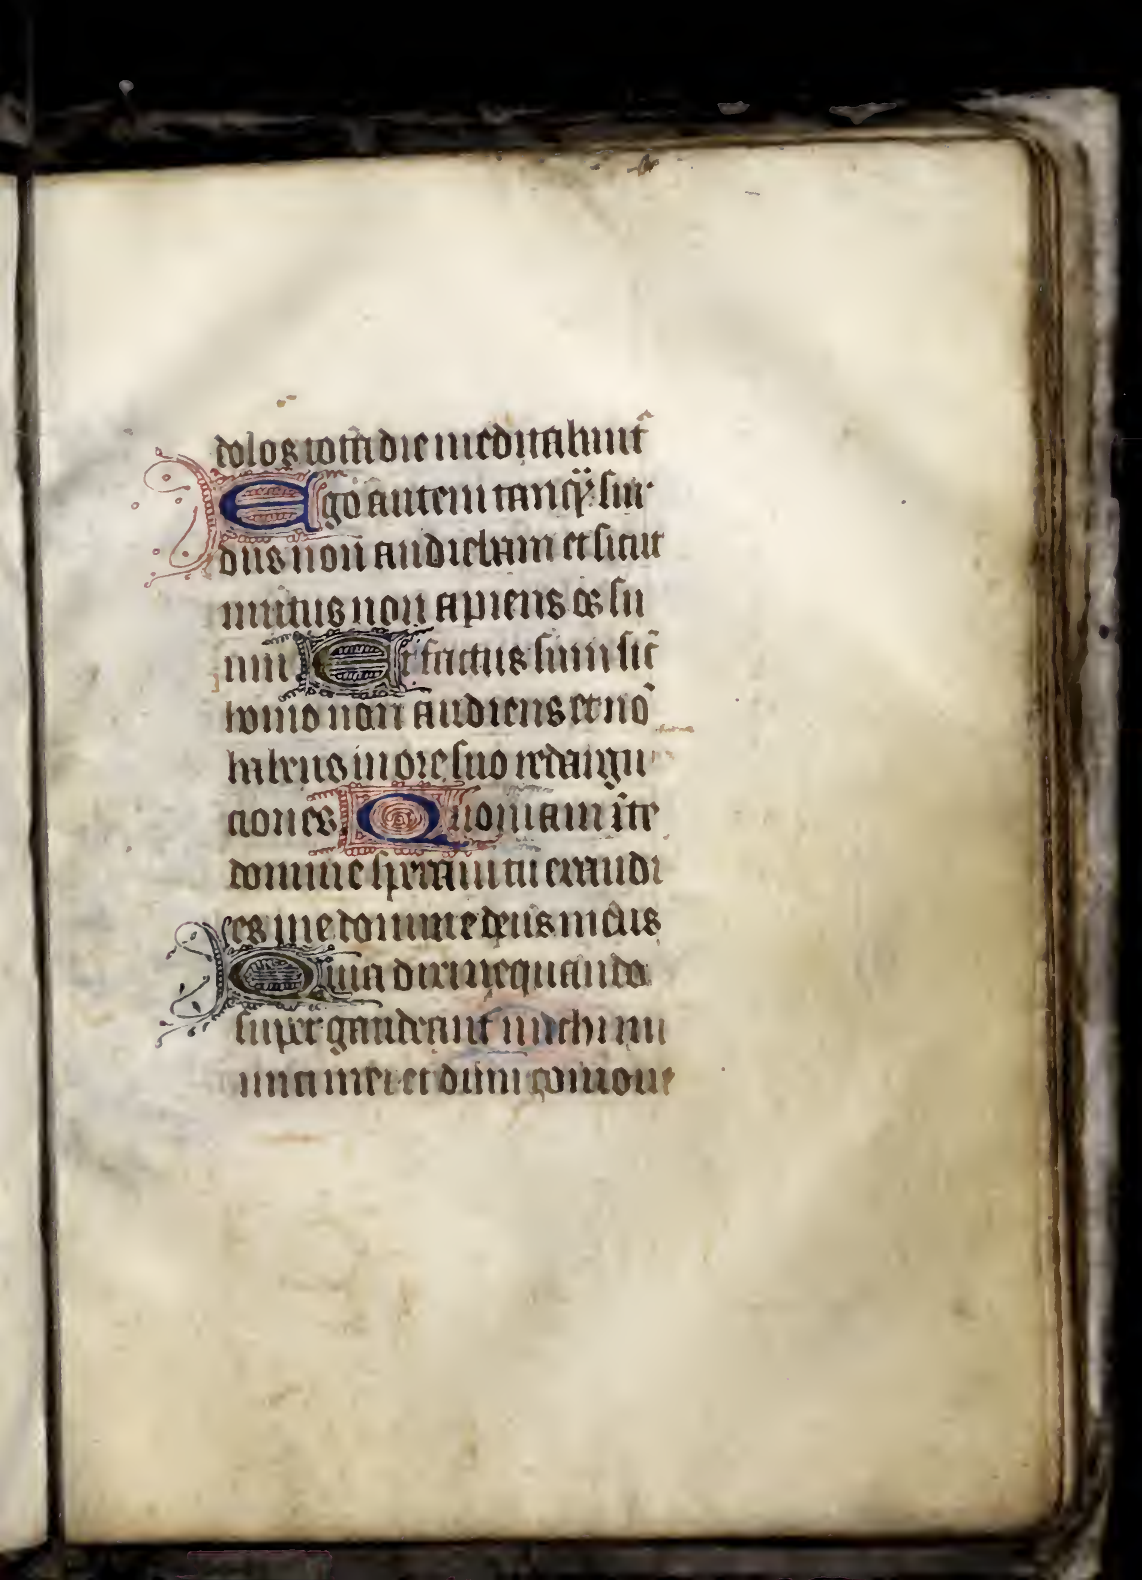 dolos tota die meditabunt᷑
Ego autem tanq̃ sur
dus non audiebam et sicut
mutus non apiens os su
um Et factus sum sic̃
homo non audiens et nõ
habens in ore suo redargu
ciones Quoniam in te
domine speraui tu exaudi
es me domine deus meus
Quia dixi nequando
super gaudeant michi ini
mici mei et dum comoue